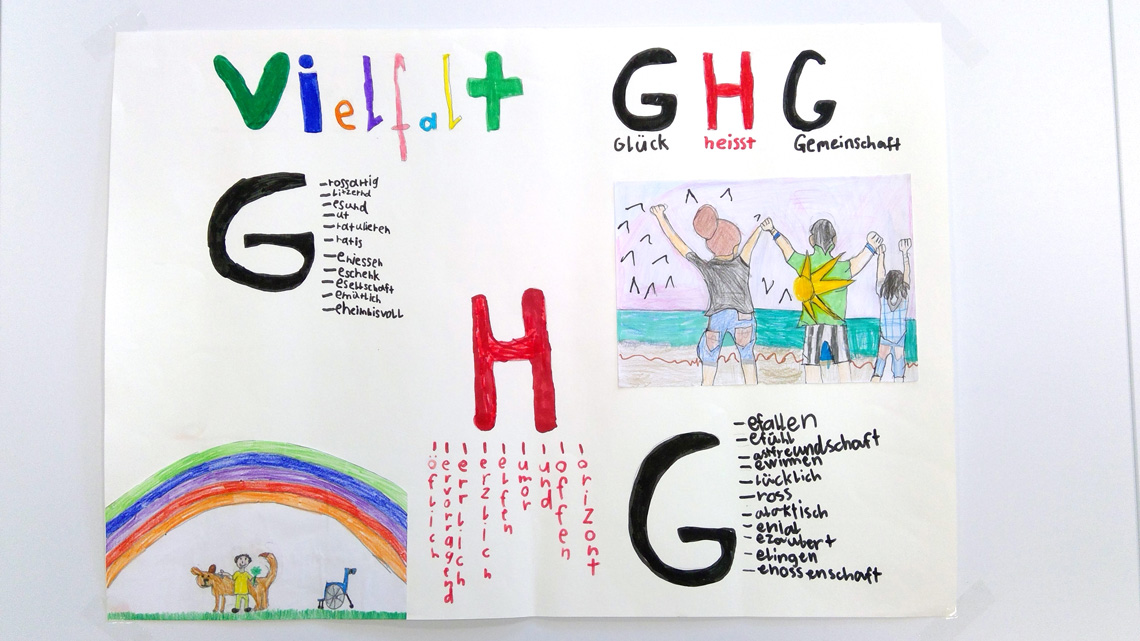 Vielfalt
G H G
Glück heisst Gemeinschaft
G
-rossartig
-litzernd
-esund
-ut
-ratulieren
-ratis
-eniessen
-eschenk
-esellschaft
-emütlich
-eheimnisvoll
H
-öflich
-ervorragend
-errlich
-erzlich
-elfen
-umor
-und
-offen
-orizont
G
-efallen
-efühl
-astfreundschaft
-ewinnen
-lücklich
-ross
-alaktisch
-enial
-ezaubert
-elingen
-enossenschaft